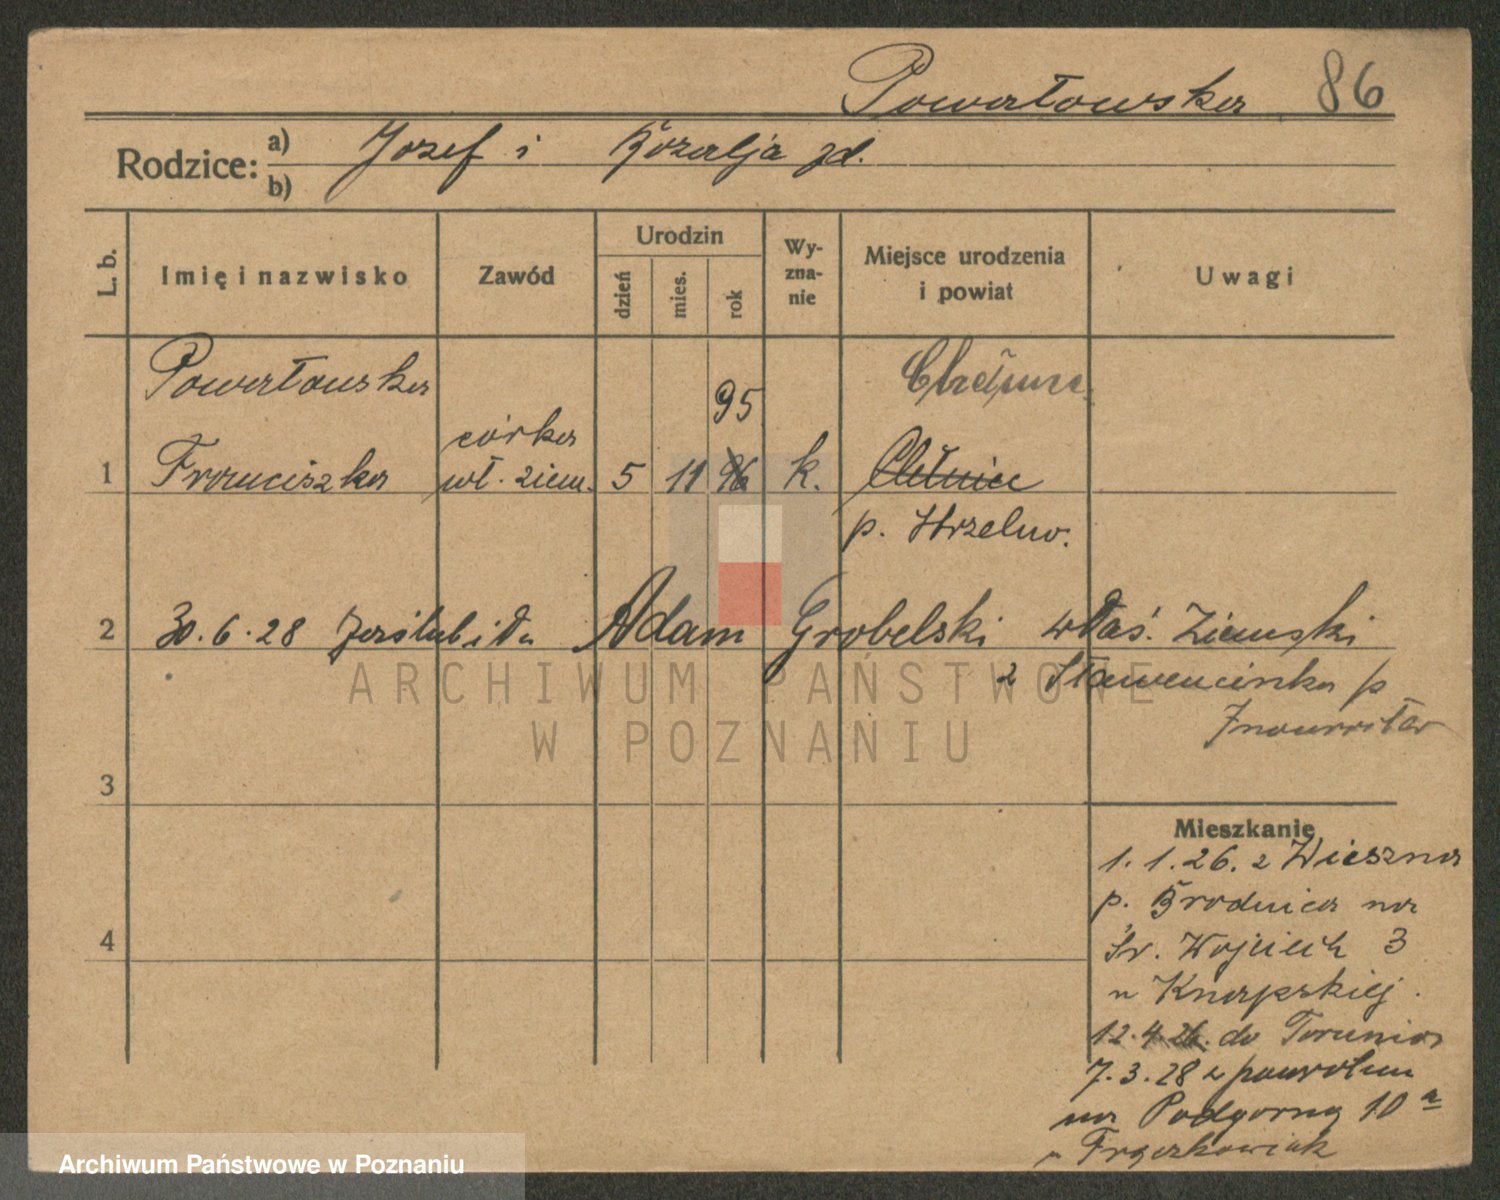 Powałowska 86
Rodzice: a) Jozef i Rozalja zd.
b)
L. b. Imię i nazwisko Zawód Urodzin dzień mies. rok Wy-zna-nie Miejsce urodzenia i powiat Uwagi
Powałowska 95
córka
1 Franciszka wł. ziem. 5 11 96 k.
p. Strzelno.
2 30.6.28 zaślubiła Adam Grobelski właś. Ziemski
z Sławencinka p
Inowrocław
3
Mieszkanie
1.1.26. z Wieszna
p. Brodnica na
4 Św. Wojciech 3
u Knapskiej.
12.4.26. do Torunia
7.3.28 z powrotem
na Podgorną 10 a
u Frąckowiak
ARCHIWUM PAŃSTWOWE
W POZNANIU
Archiwum Państwowe w Poznaniu